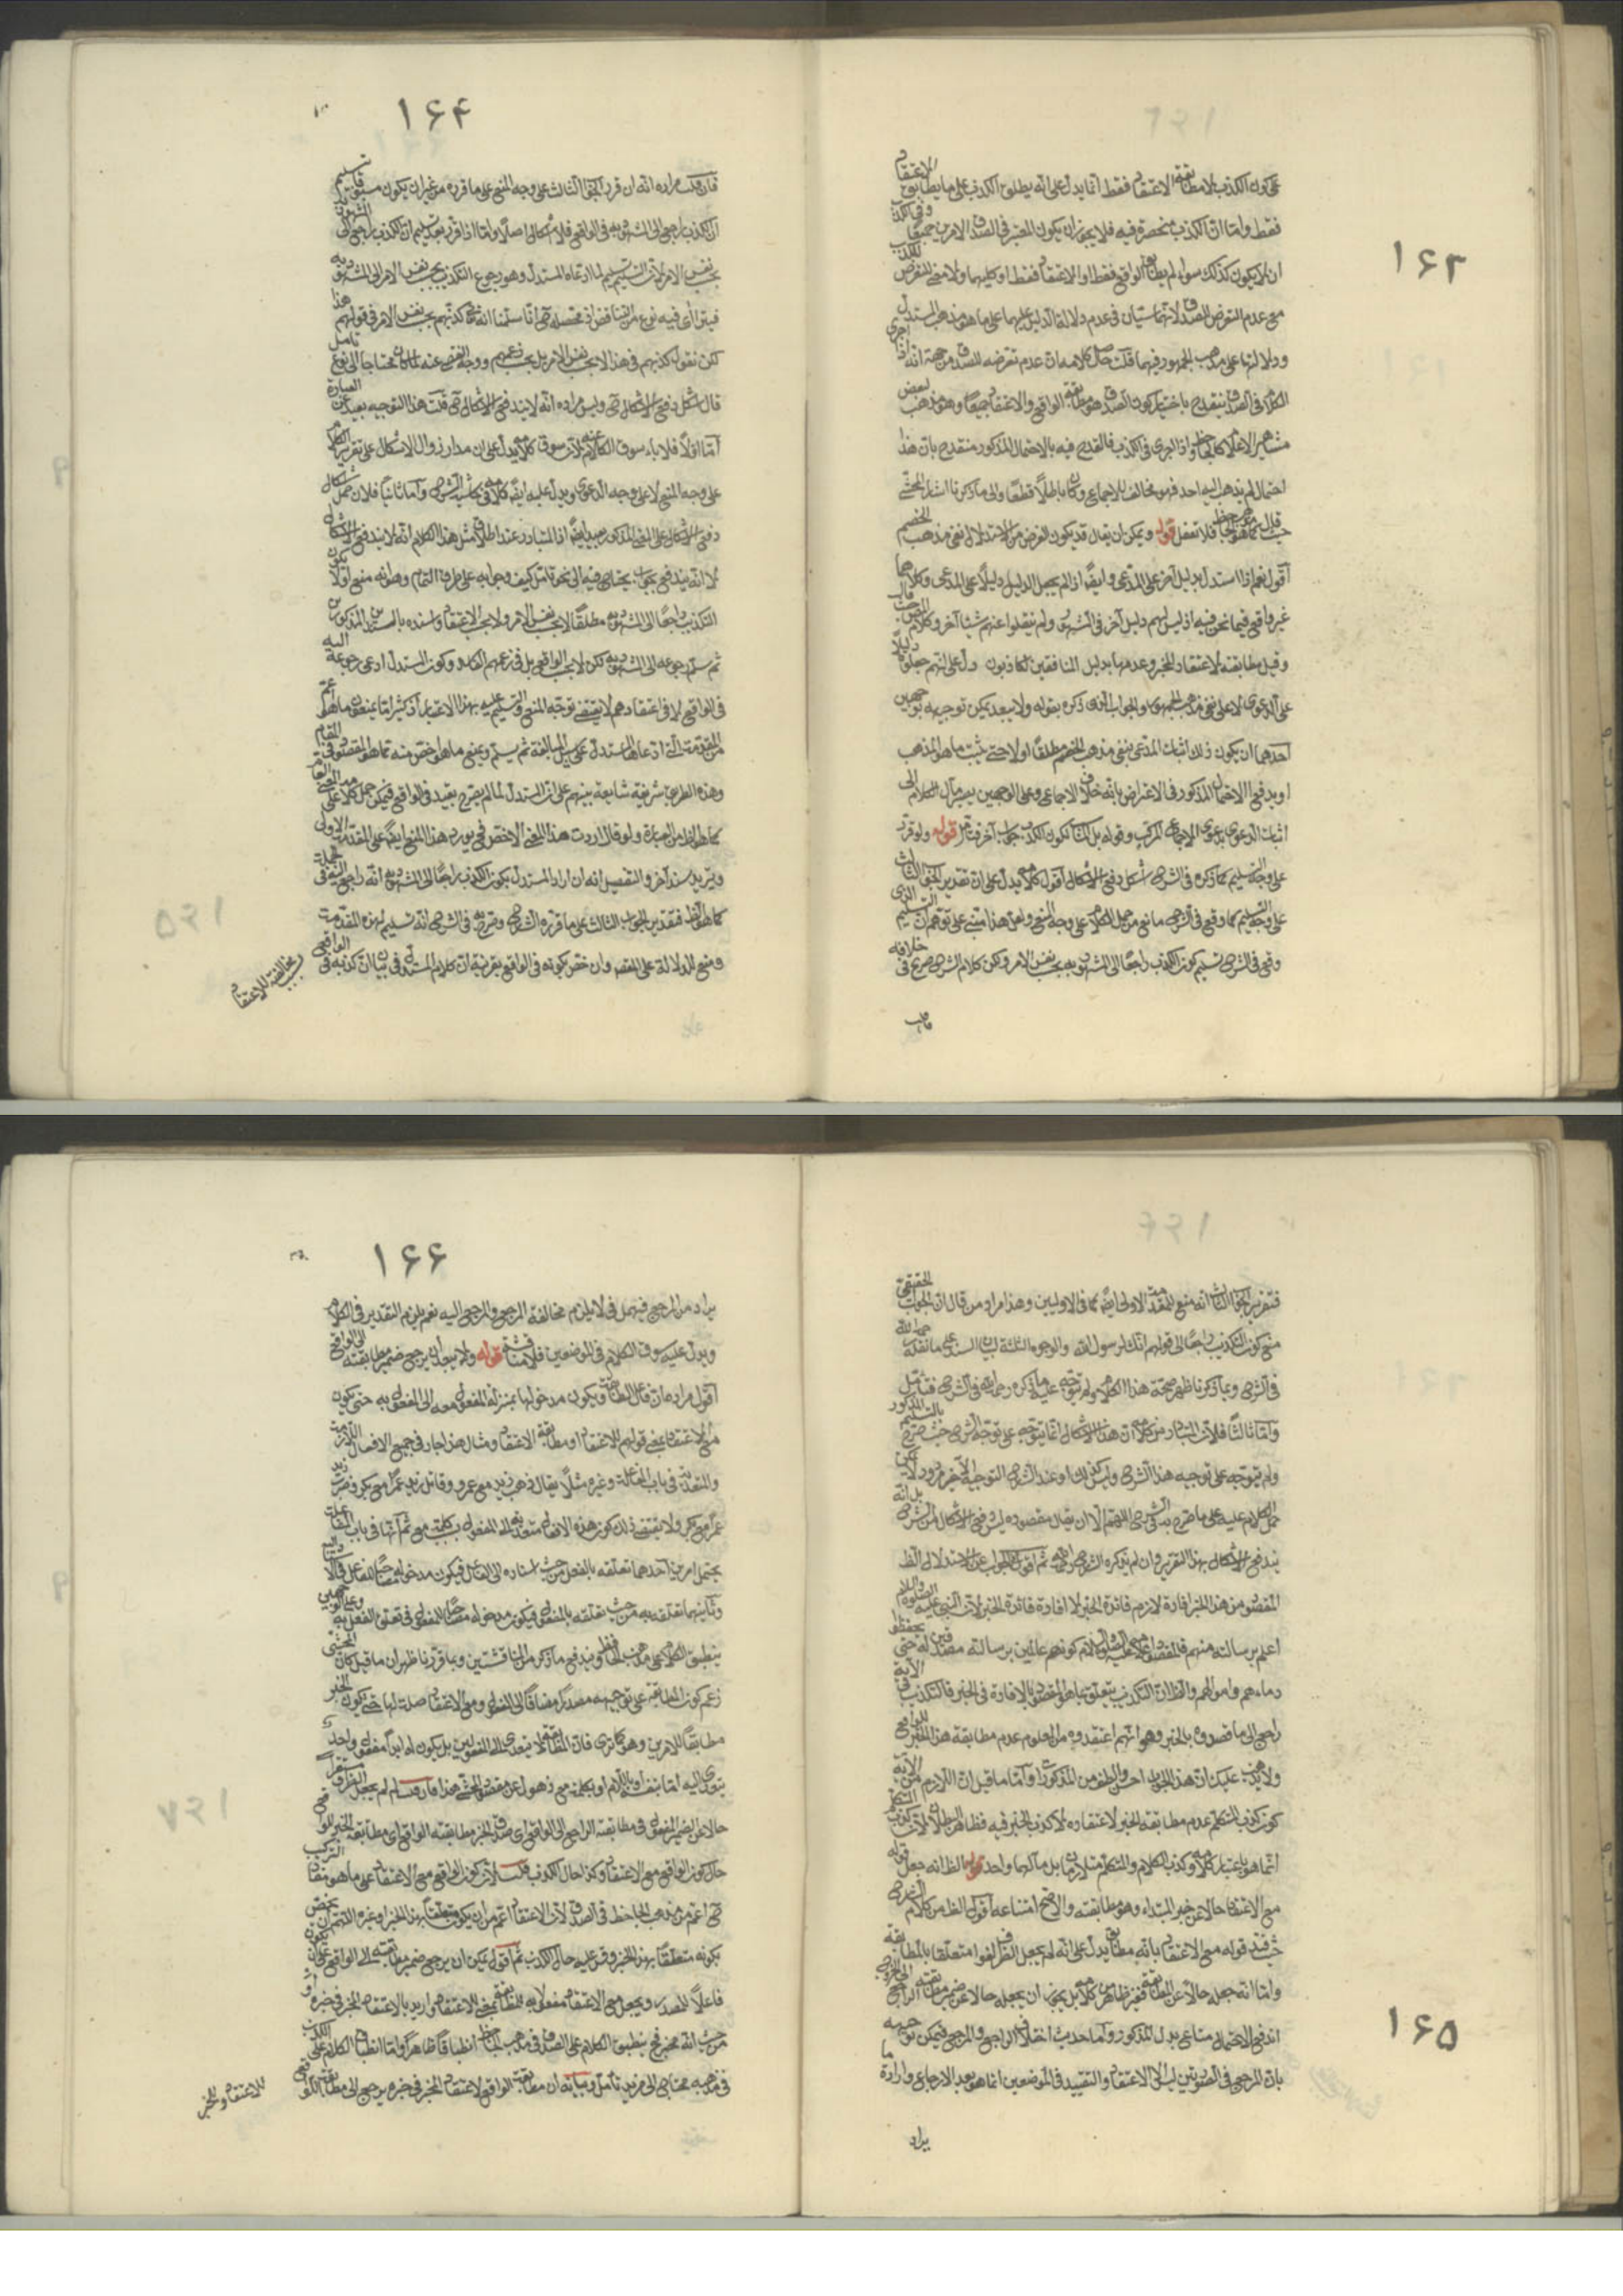 ۱۶۳
على كون الكذب لا مطابقة الاعتقاد فقط انما يدل على انه يطلق الكذب على ما يطابق الاعتقاد
فقط واما ان الكذب منحصرة فيه فلا يجوز ان يكون المعتبر فى الصدق الامرين جميعا وفى الكذب
ان لا يكون كذلك سواء لم يطابق الواقع فقط او الاعتقاد فقط او كليهما ولا معنى للتعرض للكذب
مع عدم التعرض للصدق لانهما سيان فى عدم دلالة الدليل عليهما على ما هو مذهب المستدل
ودلالتها على مذهب الجمهور فيهما قلت حاصل كلامه ان عدم تعرضه للصدق من جهة انه اذا اجرى
الكلام فى الصدق ينقدح باختيار كون الصدق هو مطابقة الواقع والاعتقاد جميعا وهو مذهب بعض
مشاهير الاعلام كالجاحظ واذا اجرى فى الكذب فالقدح فيه بالاحتمال المذكور منقدح بان هذا
احتمال لم يذهب اليه احد فهو مخالف للاجماع وكان باطلا قطعا والى ما ذكرنا اشار المحشى
حيث قال كما هو مذهب الجاحظ فلا تغفل قوله ويمكن ان يقال قد يكون الغرض من الاستدلال نفى مذهب الخصم
اقول نعم اذا استدل بدليل آخر على المدعى وايضا اذ لم يجعل الدليل دليلا على المدعى وكلاهما
غير واقع فيما نحن فيه اذ ليس لهم دليل آخر فى الشرح ولم ينقلوا عنهم شيئا آخر وكلام المص حيث قال
وقيل مطابقته لاعتقاد المخبر وعدمها بدليل ان المنافقين لكاذبون دل على انهم جعلوا دليلا
على الدعوى لا على نفى مذهب الجمهور والجواب الذى ذكره بقوله ولا يبعد يمكن توجيهه بوجهين
احدهما ان يكون ذلك اثبات المدعى بنفى مذهب الخصم مطلقا او لا حتى يثبت ما هو المذهب
او يدفع الاحتمال المذكور فى الاعتراض بانه خلاف الاجماع وعلى الوجهين يصير مآل الكلام الى
اثبات الدعوى بدعوى الاجماع المركب وقوله بل لكنا نكون الكذب جواب آخر فتأمل قوله ولو قرر
على وجه التسليم كما ذكره فى الشرح اشكل دفع الاشكال اقول كلامه يدل على ان تقدير الجواب الثالث
على وجه التسليم كما وقع فى الشرح مانع من حمل الكلام على وجه المنع ولعل هذا مبنى على توهم ان التسليم الذى
وقع فى الشرح تسليم كون الكذب راجعا الى المشهود به بحسب نفس الامر ولكن كلام الشرح صريح فى خلافه
فان قلت
۱۶۴
فان قلت مراده انه ان قرر الجواب الثالث على وجه المنع على ما قرره من غير ان يكون مسبوقا بتسليم
ان الكذب راجع الى المشهود به فى الواقع فلا اشكال اصلا واما اذا قرر بعد تسليم ان الكذب راجع الى المشهود به
بحسب نفس الامر لان التسليم تسليم لما ادعاه المستدل وهو رجوع التكذيب بحسب نفس الامر الى المشهود به
فيتراءى فيه نوع من التناقض اذ محصله انا سلمنا انه تع كذبهم بحسب نفس الامر فى قولهم هذا
لكن نقول كذبهم فى هذا لا بحسب نفس الامر بل بحسب زعمهم ووجه التفصى عنه لما كان محتاجا الى نوع تامل
قال اشكل دفع الاشكال وليس مراده انه لا يندفع الاشكال قلت هذا التوجيه بعيد عن العبارة
اما اولا فلاباء سوق الكلام عنه لان سوق كلامه يدل على ان مدار زوال الاشكال على تقرير الكلام
على وجه المنع لا على وجه الدعوى ويدل عليه ايضا كلامه فى حاشية الشرح واما ثانيا فلان حمل اشكال
دفع الاشكال على المعنى المذكور بعيد ايضا اذ المتبادر عند اطلاق مثل هذا الكلام انه لا يندفع الاشكال
لا انه يندفع بجواب يحتاج فيه الى نحو تامل كيف وجوابه على طرف التمام وهو انه منع اولا كون
التكذيب راجعا الى المشهود به مطلقا لا بحسب نفس الامر ولا بحسب الاعتقاد واسنده بالسندين المذكورين
ثم سلم رجوعه الى المشهود به لكن لا بحسب الواقع بل فى زعمهم الفاسد وكون المستدل ادعى رجوعه اليه
فى الواقع لا فى اعتقادهم لا يقتضى توجه المنع والتسليم عليه بهذا الاعتبار اذ كثيرا ما يمنعون ما هو اعم
من المقدمة التى ادعاها المستدل على سبيل المبالغة ثم يسلم ويمنع ما هو اخص منه مما هو المقصود فى المقام
وهذه الطريقة شريفة شايعة بينهم على ان المستدل لما لم يصرح بقيد فى الواقع فيمكن حمل كلامه على
كما هو الظاهر من العبارة ولو قال اردت هذا المعنى الاخص فح يورد هذا المنع ايضا على المقدمة الاولى
ويزيد سند آخر والتفصيل انه ان اراد المستدل بكون الكذب راجعا الى المشهود به انه راجع اليه فى الجملة
كما هو الظ فتقدير الجواب الثالث على ما قرره الشارح وصرح به فى الشرح انه تسليم لهذه المقدمة
ومنع للدلالة على المقصود وان خص بكونه فى الواقع بقرينة ان كلام المستدل فى بيان ان كذبه فى الواقع
بسبب مخالفته للاعتقاد
۱۶۵
فتقرير الجواب الثالث انه منع للمقدمة الاولى ايضا كما فى الاوليين وهذا مراد من قال ان الجواب الحقيقى
منع كون التكذيب راجعا الى قولهم انك لرسول الله والوجوه الثلثة لبيان السند على ما نقله رحمه الله
فى الشرح وبما ذكرنا ظهر صحة هذا الكلام ولم يتوجه عليه ما ذكره رحمه الله فى الشرح فتأمل
واما ثالثا فلان المتبادر من كلامه ان هذا الاشكال انما يتوجه على توجيه الشرح حيث صرح بالتسليم المذكور
ولم يتوجه على توجيه هذا الشرح وليس كذلك اذ عند الشرح التوجيه الاخير مردود لا يمكن
حمل الكلام عليه على ما صرح به فى الشرح اللهم الا ان يقال مقصوده ليس دفع الاشكال من الشرح بل انه
يندفع الاشكال بهذا التقرير وان لم يذكره الشارح ثم اقول الجواب عن الاستدلال الظ
المقصود من هذا الخبر افادة لازم فائدة الخبر لا افادة فائدة الخبر لان النبى عليه الصلوة والسلام
اعلم برسالته منهم فالمقصود اعلامه عليه السلام كونهم عالمين برسالته مصدقين له حتى يحفظوا
دماءهم واموالهم والظ ان التكذيب يتعلق بما هو المقصود بالافادة فى الخبر فالتكذيب فى الآية
راجع الى ما قصدوه بالخبر وهو انهم اعتقدوه ومن المعلوم عدم مطابقة هذا الخبر للواقع
ولا يذهب عليك ان هذا الجواب احسن والطف من المذكورات واما ما قيل ان اللازم من الآية
كون كذب المتكلم عدم مطابقة الخبر لاعتقاده لا كذب الخبر فيه فظاهر البطلان لان كون المتكلم
انما هو باعتبار كلامه وكذب الكلام والمتكلم متلازمان بل مآلهما واحد قوله الظ انه جعل قوله
مع الاعتقاد حالا عن خبر المبتداء وهو مطابقته والاصح امتناعه اقول الظ من كلام الشرح
حيث قيد قوله مع الاعتقاد بانه مطابق يدل على انه لم يجعل الظرف لغوا متعلقا بالمطابقة
واما انه جعله حالا عن المطابقة فغير ظاهر من كلامه بل يجوز ان يجعله حالا عن ضمير مطابقته الراجع الى الواقع
اندفع الاحتمال متاعى بدل المذكور واما حديث اختلاف الراجع والمرجع فيمكن توجيهه
بان المرجع فى الصورتين ليس الا الاعتقاد والتقييد فى الموضعين انما هو بعد الارجاع وارادة ما
يراد
۱۶۶
يراد من المرجع فيهما فح لا يلزم مخالفة الراجع والمرجع اليه نعم يلزم التقدير فى الكلام
ويدل عليه سوق الكلام فى الموضعين فلا مناقشة قوله ولا يبعد ان يرجع ضمير مطابقته الى الواقع
اقول مراده ان فاعل المطابقة ويكون مدخولها بمنزلة المفعول معه الى المفعول به حتى يكون
مع الاعتقاد بمعنى قولهم للاعتقاد او مطابقة الاعتقاد ومثال هذا جار فى جميع الافعال اللازمة
والمتعدية فى باب المفاعلة وغيره مثلا يقال ذهب زيد مع عمرو وقاتل زيد عمرا مع بكر وضرب زيد
عمرا مع بكر ولا يقتضى ذلك كون هذه الافعال متعدية الى المفعول بكلمة مع ثم انها فى باب المفاعلة
يحتمل امرين احدهما تعلقه بالفعل من حيث اسناده الى الفاعل فيكون مدخوله مصاحبا للفاعل
وثانيهما تعلقه به من حيث تعلقه بالمفعول فيكون مدخوله مصاحبا للمفعول فى تعلق الفعل به وعلى الوجهين
ينطبق الكلام على مذهب الجاحظ ويندفع ما ذكر من المناقشتين وبما قررنا ظهر ان ما قيل كان المحشى
زعم كون المطابقة على توجيهه مصدرا مضافا الى المفعول ومع الاعتقاد صلة لها حتى يكون الخبر
مطابقا للامرين وهو كما ترى فان المطابقة لا يتعدى الى المفعولين بل يكون له ابدا مفعول واحد
يتعدى اليه اما بنفسه او باللام او بكلمة مع ذهول عن مقصود المحشى هذا فان قلت لم لم يجعل الظرف مستقرا
حالا عن الضمير المفعول فى مطابقته الراجع الى الواقع اى صدق الخبر مطابقته الواقع اى مطابقة الخبر للواقع
حال كون الواقع مع الاعتقاد وكذا حال الكذب قلت لان كون الواقع مع الاعتقاد على ما هو مفاد التركيب
اعم من مذهب الجاحظ فى الصدق لان الاعتقاد اعم من ان يكون متعلقا بهذا الخبر او غيره اللهم ان يخصص
بكونه متعلقا بهذا الخبر وقس عليه حال الكذب ثم اقول يمكن ان يرجع ضمير مطابقته الى الواقع على ان يكون
فاعلا للمصدر ويجعل مع الاعتقاد مفعولا به للمطابقة بمعنى للاعتقاد واريد بالاعتقاد المخبر فى خبره
من حيث انه مخبر فح ينطبق الكلام على الصدق فى مذهب الجاحظ انطباقا ظاهرا واما انطباق الكلام على الكذب
فى مذهبه محتاج الى مزيد تأمل وبيانه ان مطابقة الواقع لاعتقاد المخبر فى خبره يرجع الى مطابقة الواقع
للاعتقاد والخبر